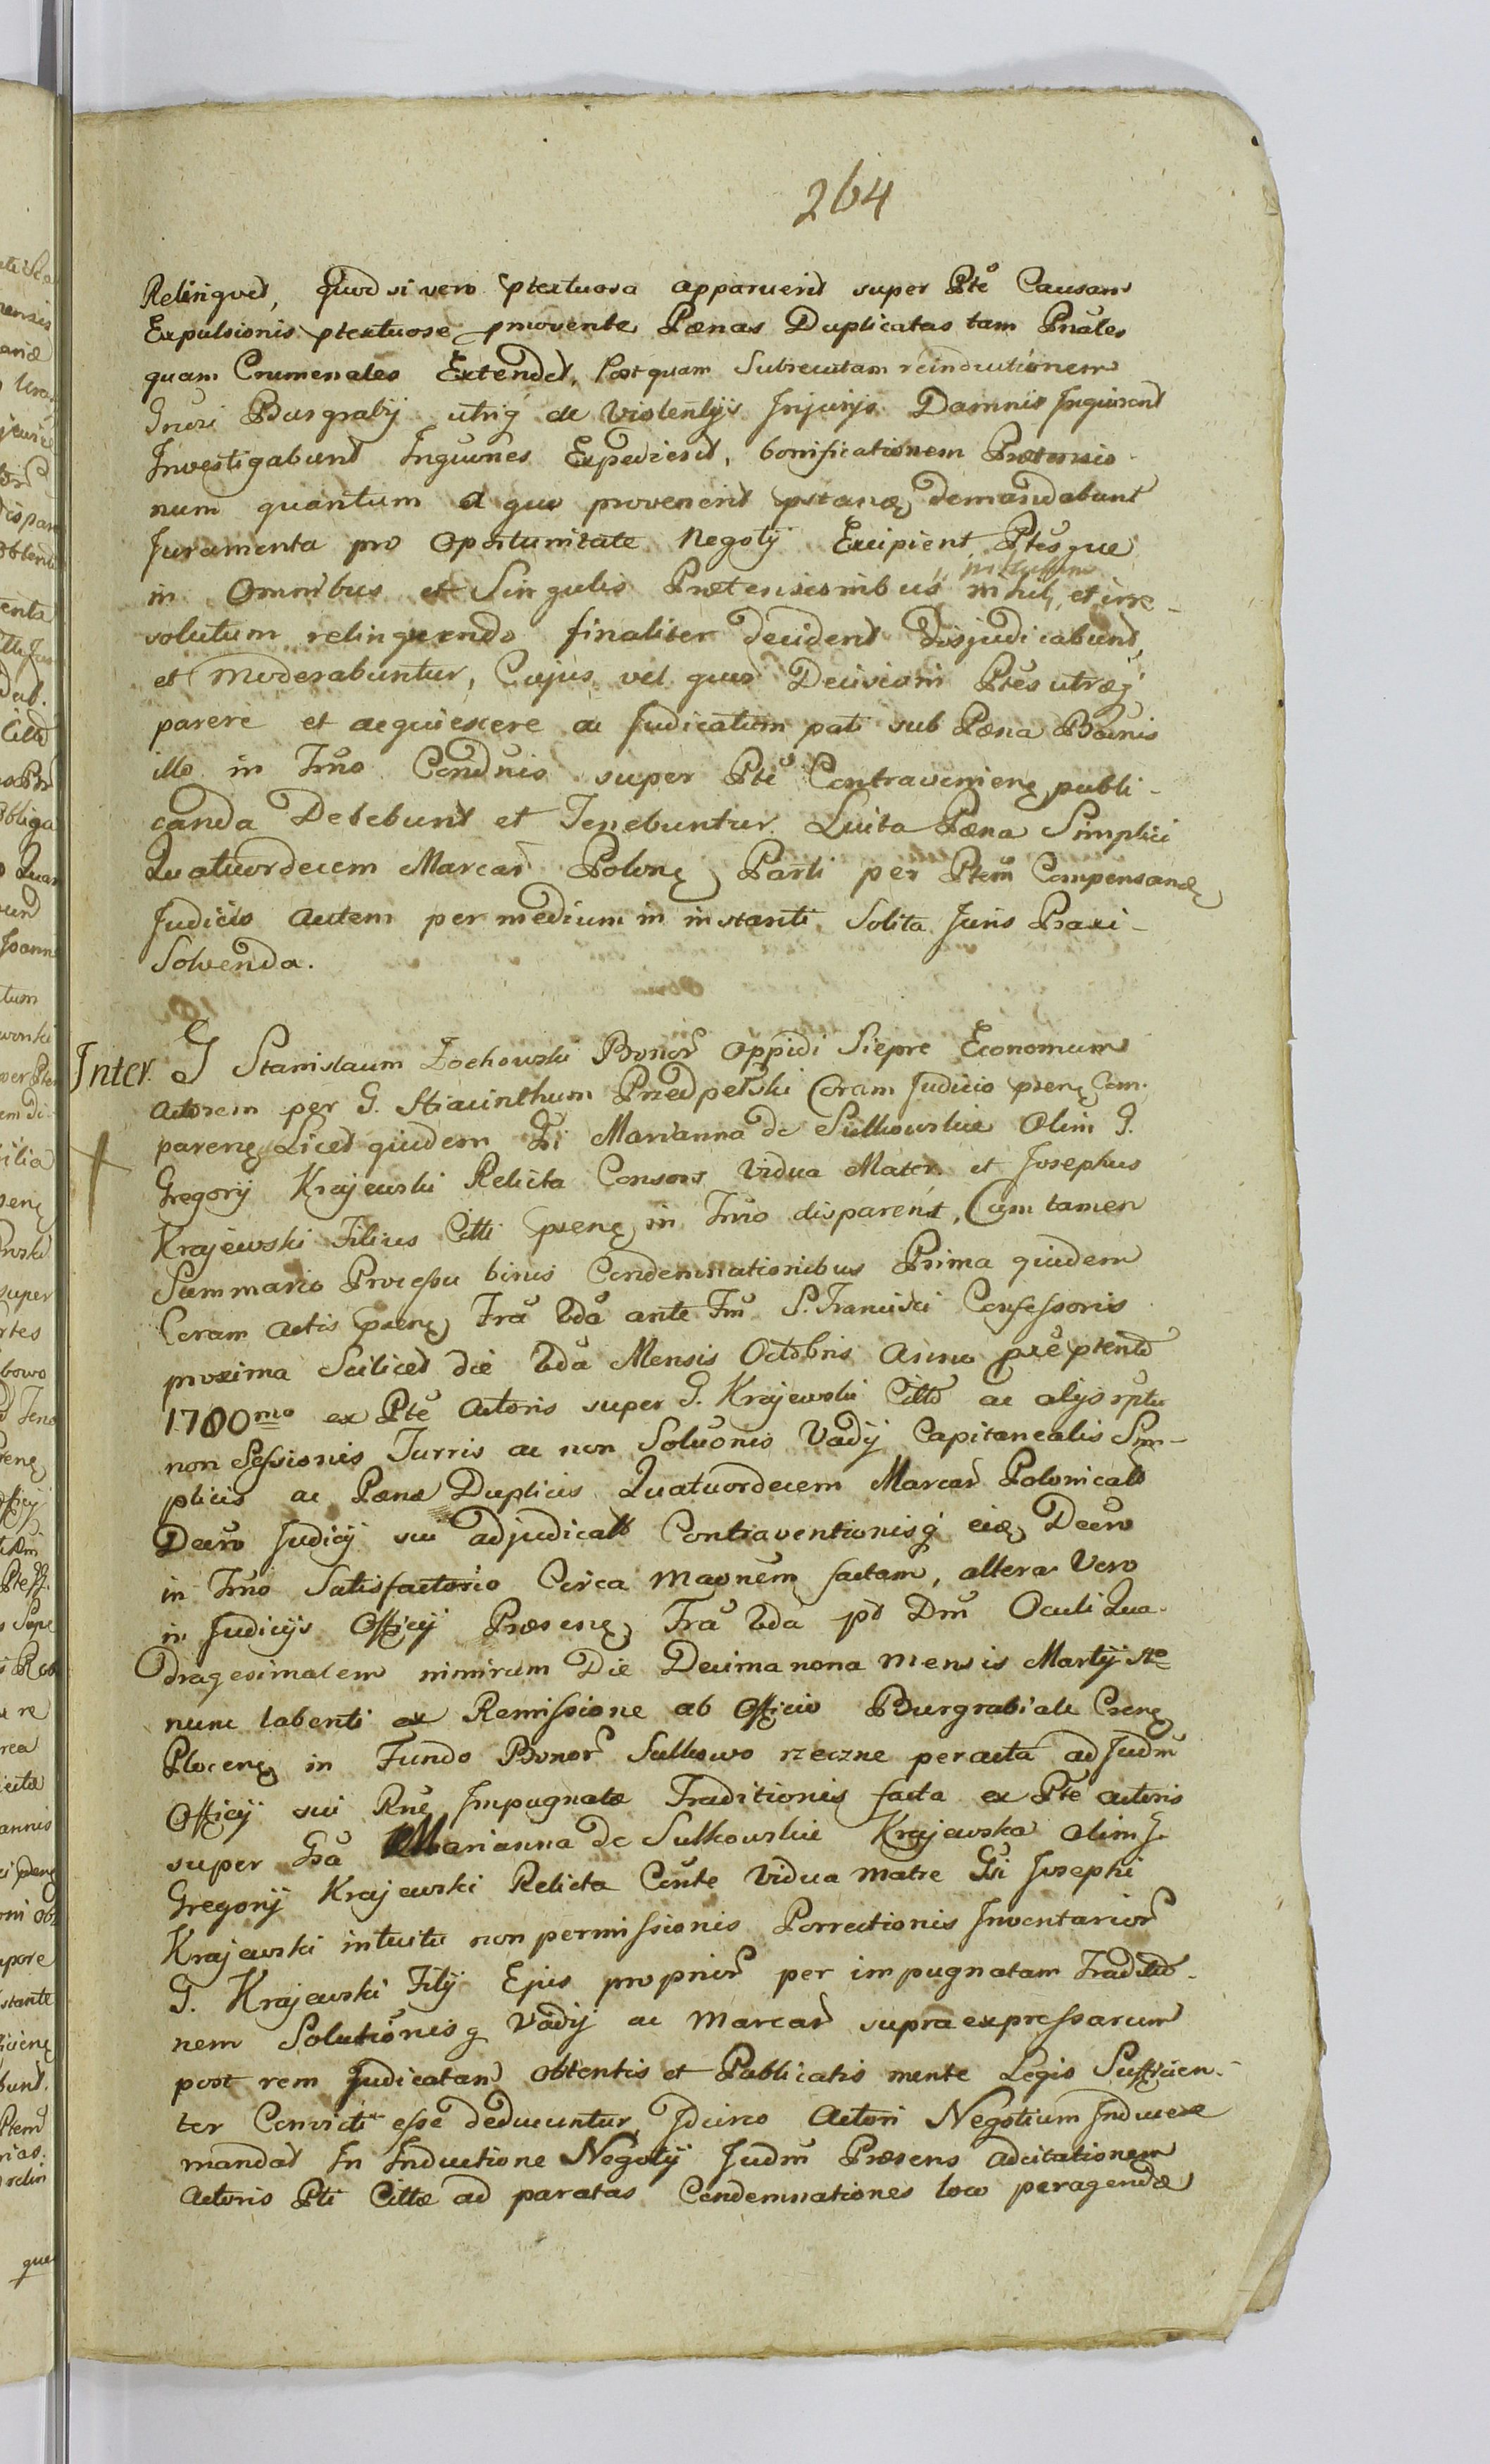 264
Relinquet, quod si vero ptextuosa apparuerit super Pte Causam
Expulsionis ptextuose pmovente Pænas Duplicatas tam Pnales
quam Crumenales Extendet, Postquam Subsecutam reinductionem
Gnosi Burgrabij utriq de Violentijs Injurijs Damnis Inquirent
Investigabunt Inquiones Expedient, bonificationem Prætensio-
num quantum a quo provenerit pstanę demandabunt
Juramenta pro Oportunitate Negotij Excipient Ptesque
in Omnibus et Singulis Prætensionibus nihil, et irre-
solutum relinquendo finaliter decident Disjudicabunt,
et Moderabuntur, Cujus vel quor Decisioni Ptes utræq
parere et acquiescere ac Judicatum pati sub Pæna Bannis
illo in Trno Condnis super Pte Contravenienę publi-
canda Debebunt et Tenebuntur Luita Pæna Simplici
Quatuordecem Marcar Polonę Parti per Ptem Compensandę
Judicio autem per medium in instanti Solita Juris Praxi
Solvenda.
Inter. G Stanislaum Zochowski Bonor Oppidi Siepre Economum
actorem per G. Hiacinthum Przedpełski Coram Judicio psenę Com-
parenę Licet quidem Gsi Marianna de Sulkowskie Olim G.
Gregorij Krajewski Relicta Consors Vidua Mater et Josephus
Krajewski Filius Citti psenę in Trno disparent, Cum tamen
Summario Processu binis Condemnationibus Prima quidem
Coram actis psenę Fra 2da ante Fm S. Francisci Confessoris
proxima Scilicet die 2da Mensis Octobris Anno pse ptento
1780mo ex Pte Actoris super G. Krajewski Citto ac alijs rptu
non Sessionis Turris ac non Soluonis Vadij Capitanealis Sim-
plicis ac Pænæ Duplicis Quatuordecem Marcar Polonicali
Decro Judicij sui adjudicati Contraventionisq eidę Decro
in Trno Satisfactorio Circa Maonem factam, altera Vero
in Judicijs Officij Præsenę Fra 2da pt Dm Oculi Qua-
dragesimalem nimirum Die Decima nona mensis Martij Ao
nunc labenti ex Remissione ab Officio Burgrabiali Csenę
Plocenę in Fundo Bonor Sulkowo rzeczne peracta ad Judm
Officij sui Rne Impugnatæ Traditionis facta ex Pte actoris
super Gsa Marianna de Sulkowskie Krajewska olim G.
Gregorij Krajewski Relicta Conte Vidua Matre Gsi Josephi
Krajewski intuitu non permissionis Porrectionis Inventarior
G. Krajewski Filij Ejus proprior per impugnatam Traditio-
nem Solutionisq Vadij ac Marcar supra expressarum
post rem Judicatam obtentis et Publicatis mente Legis Sufficien-
ter Convicti esse deducuntur, Idcirco Actori Negotium Inducere
mandat In Inductione Negotij Judm Præsens ad citationem
Actoris Pti Cittæ ad paratas Condemnationes loco peragendæ